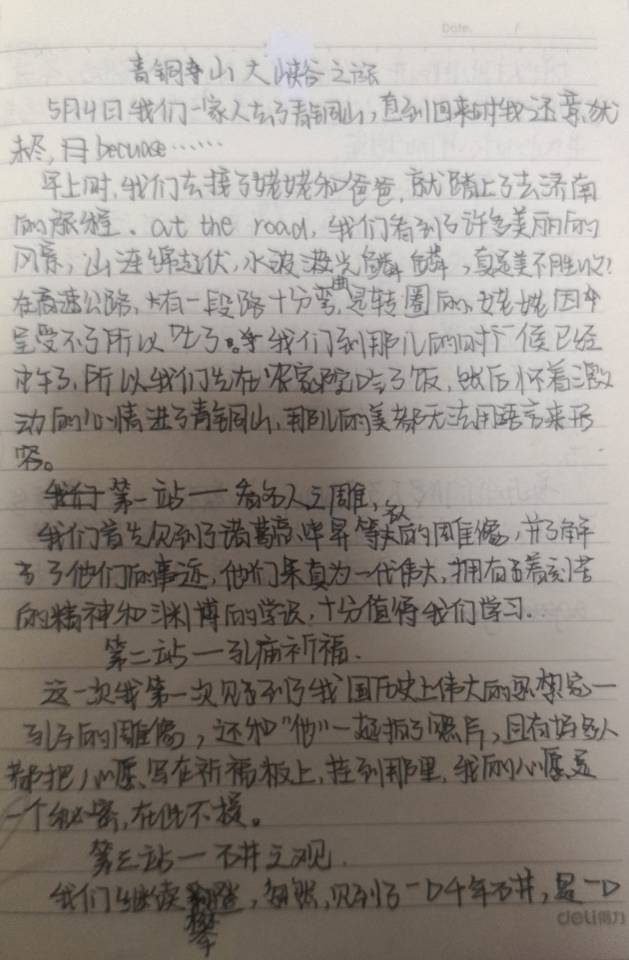 Date. /
青铜寺山大峡谷之旅
5月4日我们一家人去了青铜山,直到回来时我还意犹
未尽,因becuase……
早上时,我们去接了姥姥和爸爸,就踏上了去济南
的旅程、at the road,我们看到了许多美丽的
风景,山连绵起伏,水波激光鳞鳞,真是美不胜收?
在高速公路,有一段路十分弯曲,是转圈的,姥姥因
呈受不了所以吐了。我们到那儿的时候已经
中午了,所以我们先在农家院吃了饭,然后怀着激
动的心情进了青铜山,那儿的美都无法用语言来形
容。
第一站——看名人之雕,
我们首先见到了诸葛亮、毕昇等人的周隹像,并了解
了他们的事近,他们果真为一代伟大,拥有着刻苦
的精神和渊博的学识,十分值得我们学习.
第二站——孔庙祈福.
这一次我第一次见到了我国历史上伟大的思想家—
孔子的雕像,还和“他”一起拍了照片,且有好多人
都把心愿写在祈福板上,挂到那里,我的心愿是
一个秘密,在此不授。
第三站—古井之观.
我们继续攀,忽然,见到了一口千年古井,是一口
deli得力